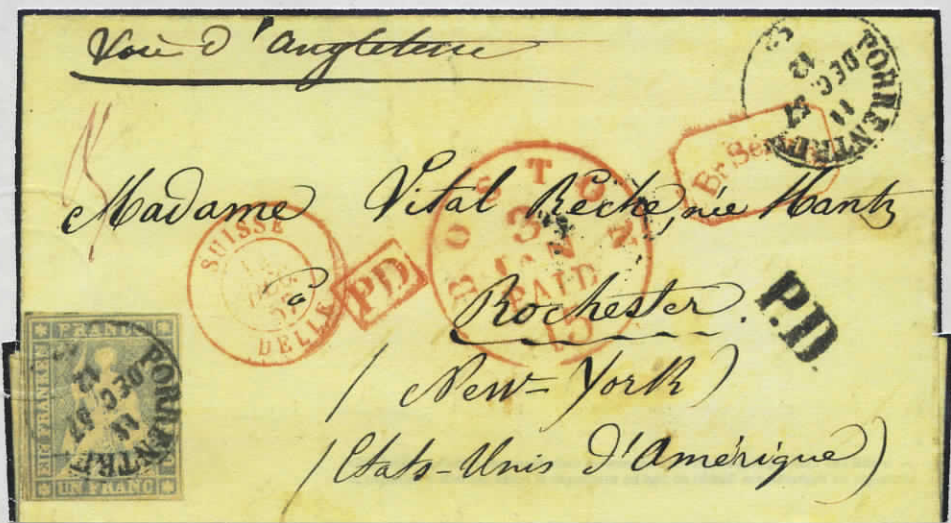 Voie d'Angleterre
PORRENTRUY
12
DEC. 57
11
Br. Service
Madame Vital Recke, née Mantz
SUISSE
DELLE
PD
BOSTON
3
JAN
PAID
15
à Rochester.
P.D
(New-York)
(Etats-Unis d'Amérique)
FRANCO
UN FRANC
PORRENTRUY
12
DEC. 57
11